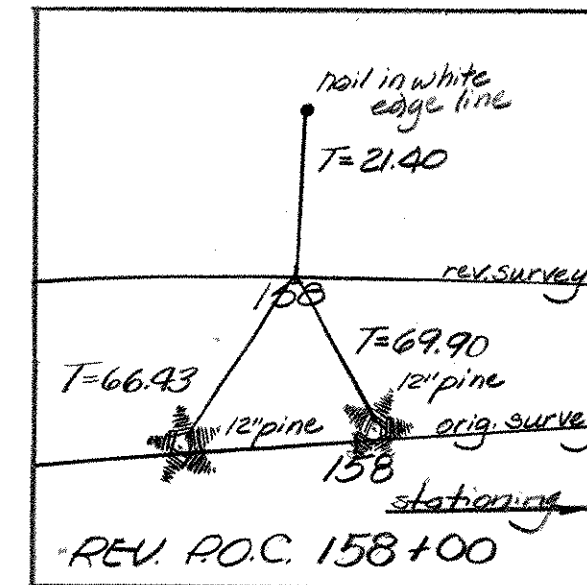 nail in white
edge line
T=21.40
rev. survey
158
T=66.43
T=69.90
12" pine
12" pine
orig. surve
158
stationing
REV. P.O.C. 158+00